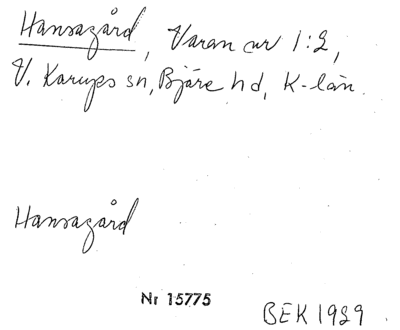 Hansagård, Varan nr 1:2,
V. Karups sn, Bjäre hd, K-län.
Hansagård
Nr 15775
BEK 1929.